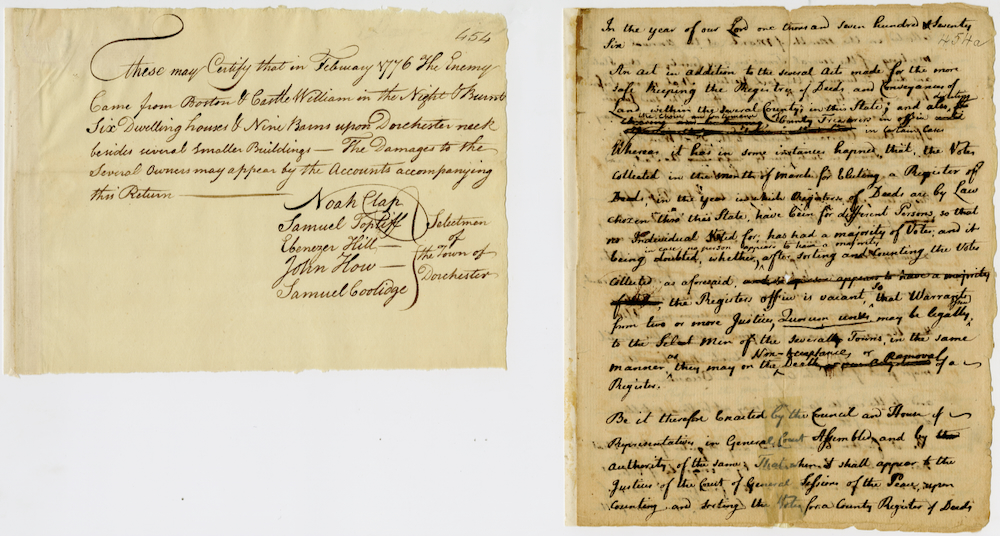 454
These may Certify that in February 1776 The Enemy
Came from Boston & Castle William in the Night & Burnt
Six Dwelling houses & Nine Barns upon Dorchester neck
besides several Smaller Buildings — The Damages to the
Several Owners may appear by the Accounts accompanying
this Return
Noah Clap
Samuel Topliff
Ebenezer Hill
John How
Samuel Coolidge
Selectmen
of
the Town of
Dorchester
In the year of our Lord one thousand seven hundred & Seventy
Six
454a
An Act in addition to the several Acts made for the more
safe keeping the Registry of Deeds and Conveyances of
Land within the several Counties in this State; and also, for
the choice and
County Treasurers in office
in certain Cases
Whereas it has in some instances hapned, that, the Votes
Collected in the Month of March for Electing a Register of
Deeds, in the year in which Registers of Deeds are by Law
chosen thro' this State, have been for different Persons, so that
no Individual Voted for, has had a majority of Votes, and it
in case no person appears to have a majority
being doubted, whether, after sorting and Counting the Votes
Collected as aforesaid, appears to have a majority
the Registers office is vacant, so that Warrants
from two or more Justices, Quorum unus, may be legally
to the Select Men of the several Towns, in the same
Non-acceptance or
manner as they may on the Death Removal of a
Register.
Be it therefore Enacted by the Council and House of
Representatives in General Court Assembled, and by the
authority of the same, That when it shall appear to the
Justices of the Court of General Sessions of the Peace, upon
Counting and sorting the Votes for a County Register of Deeds